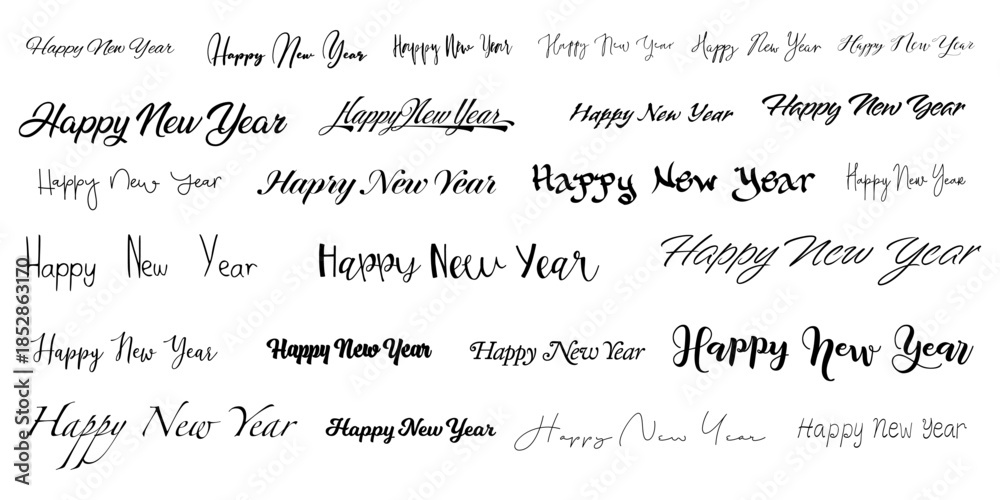 Happy New Year Happy New Year Happy New Year Happy New Year Happy New Year Happy New Year
Happy New Year Happy New Year Happy New Year Happy New Year
Happy New Year Hapry New Year Happy New Year Happy New Year
Happy New Year Happy New Year Happy New Year
Happy New Year Happy New Year Happy New Year Happy New Year
Happy New Year Happy New Year Happy New Year Happy New Year
Adobe Stock | #1852863170